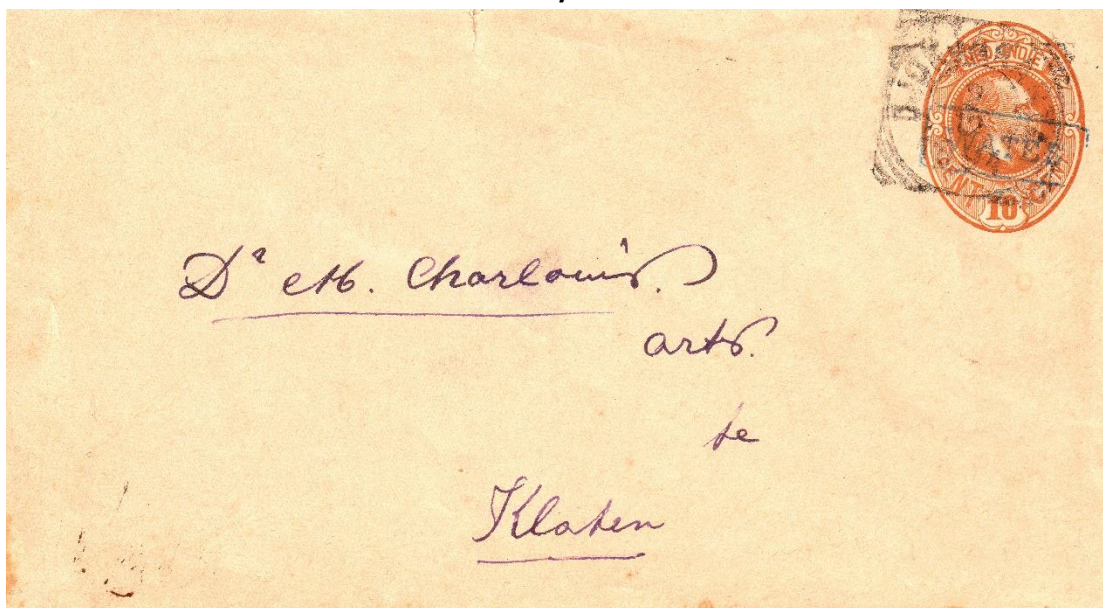 NED. INDIE
CENT 10 CENT
Dr M. Charlouis.
arts.
te
Klaten